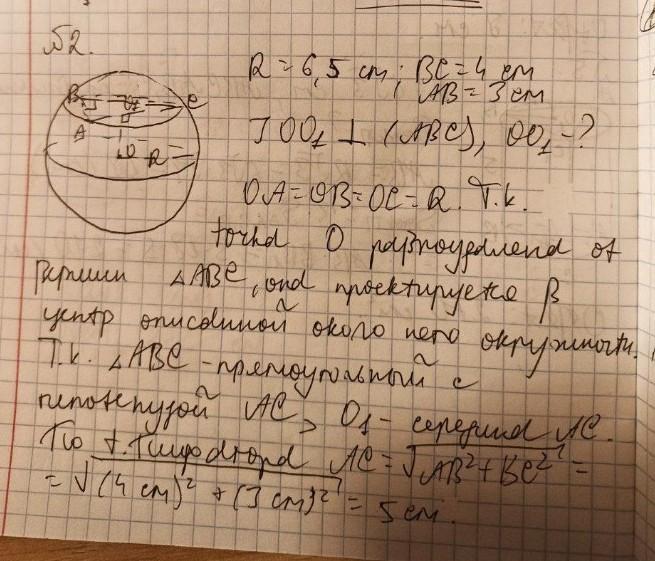 №2.
R = 6,5 cm; BC = 4 cm
AB = 3 cm
B O₁ C
A
O R
OO₁ ⊥ (ABC), OO₁ - ?
OA = OB = OC = R. Т.к.
точка O равноудалена от
вершин △ABC, она проектируется в
центр описанной около него окружности.
Т.к. △ABC - прямоугольный с
гипотенузой AC, O₁ - середина AC.
По т. Пифагора AC = √AB² + BC² =
= √(4 cm)² + (3 cm)² = 5 cm.